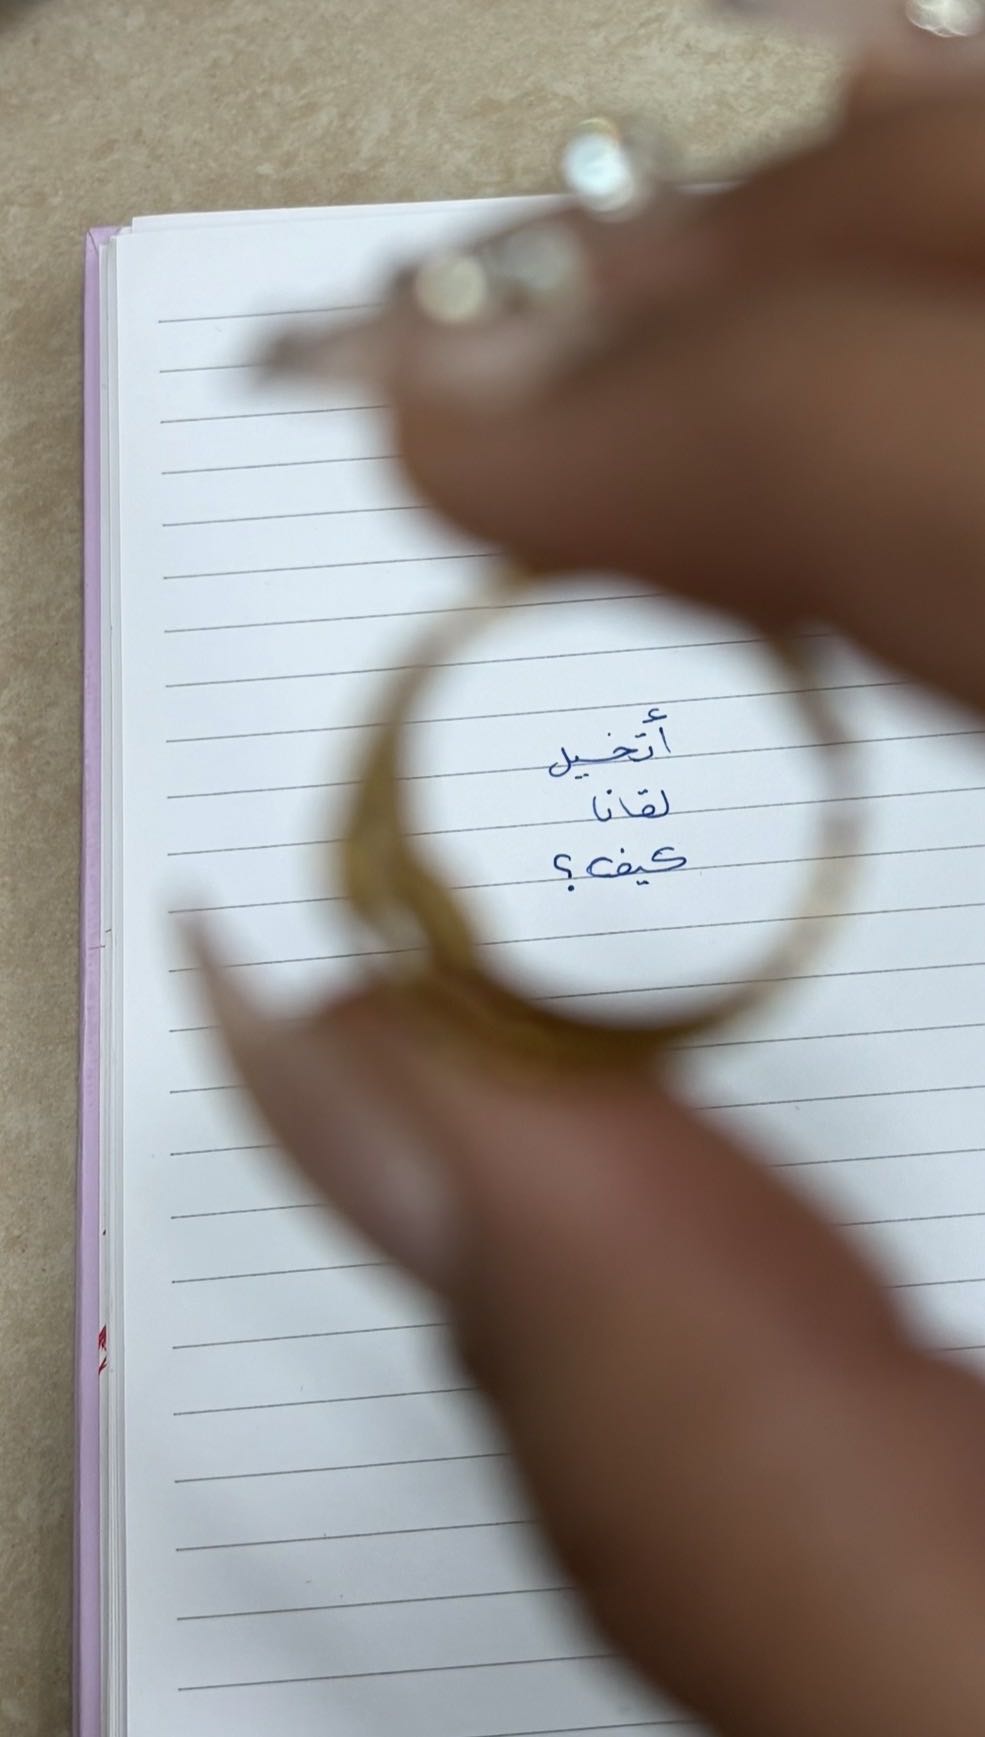 أتخيل
لقانا
كيف؟